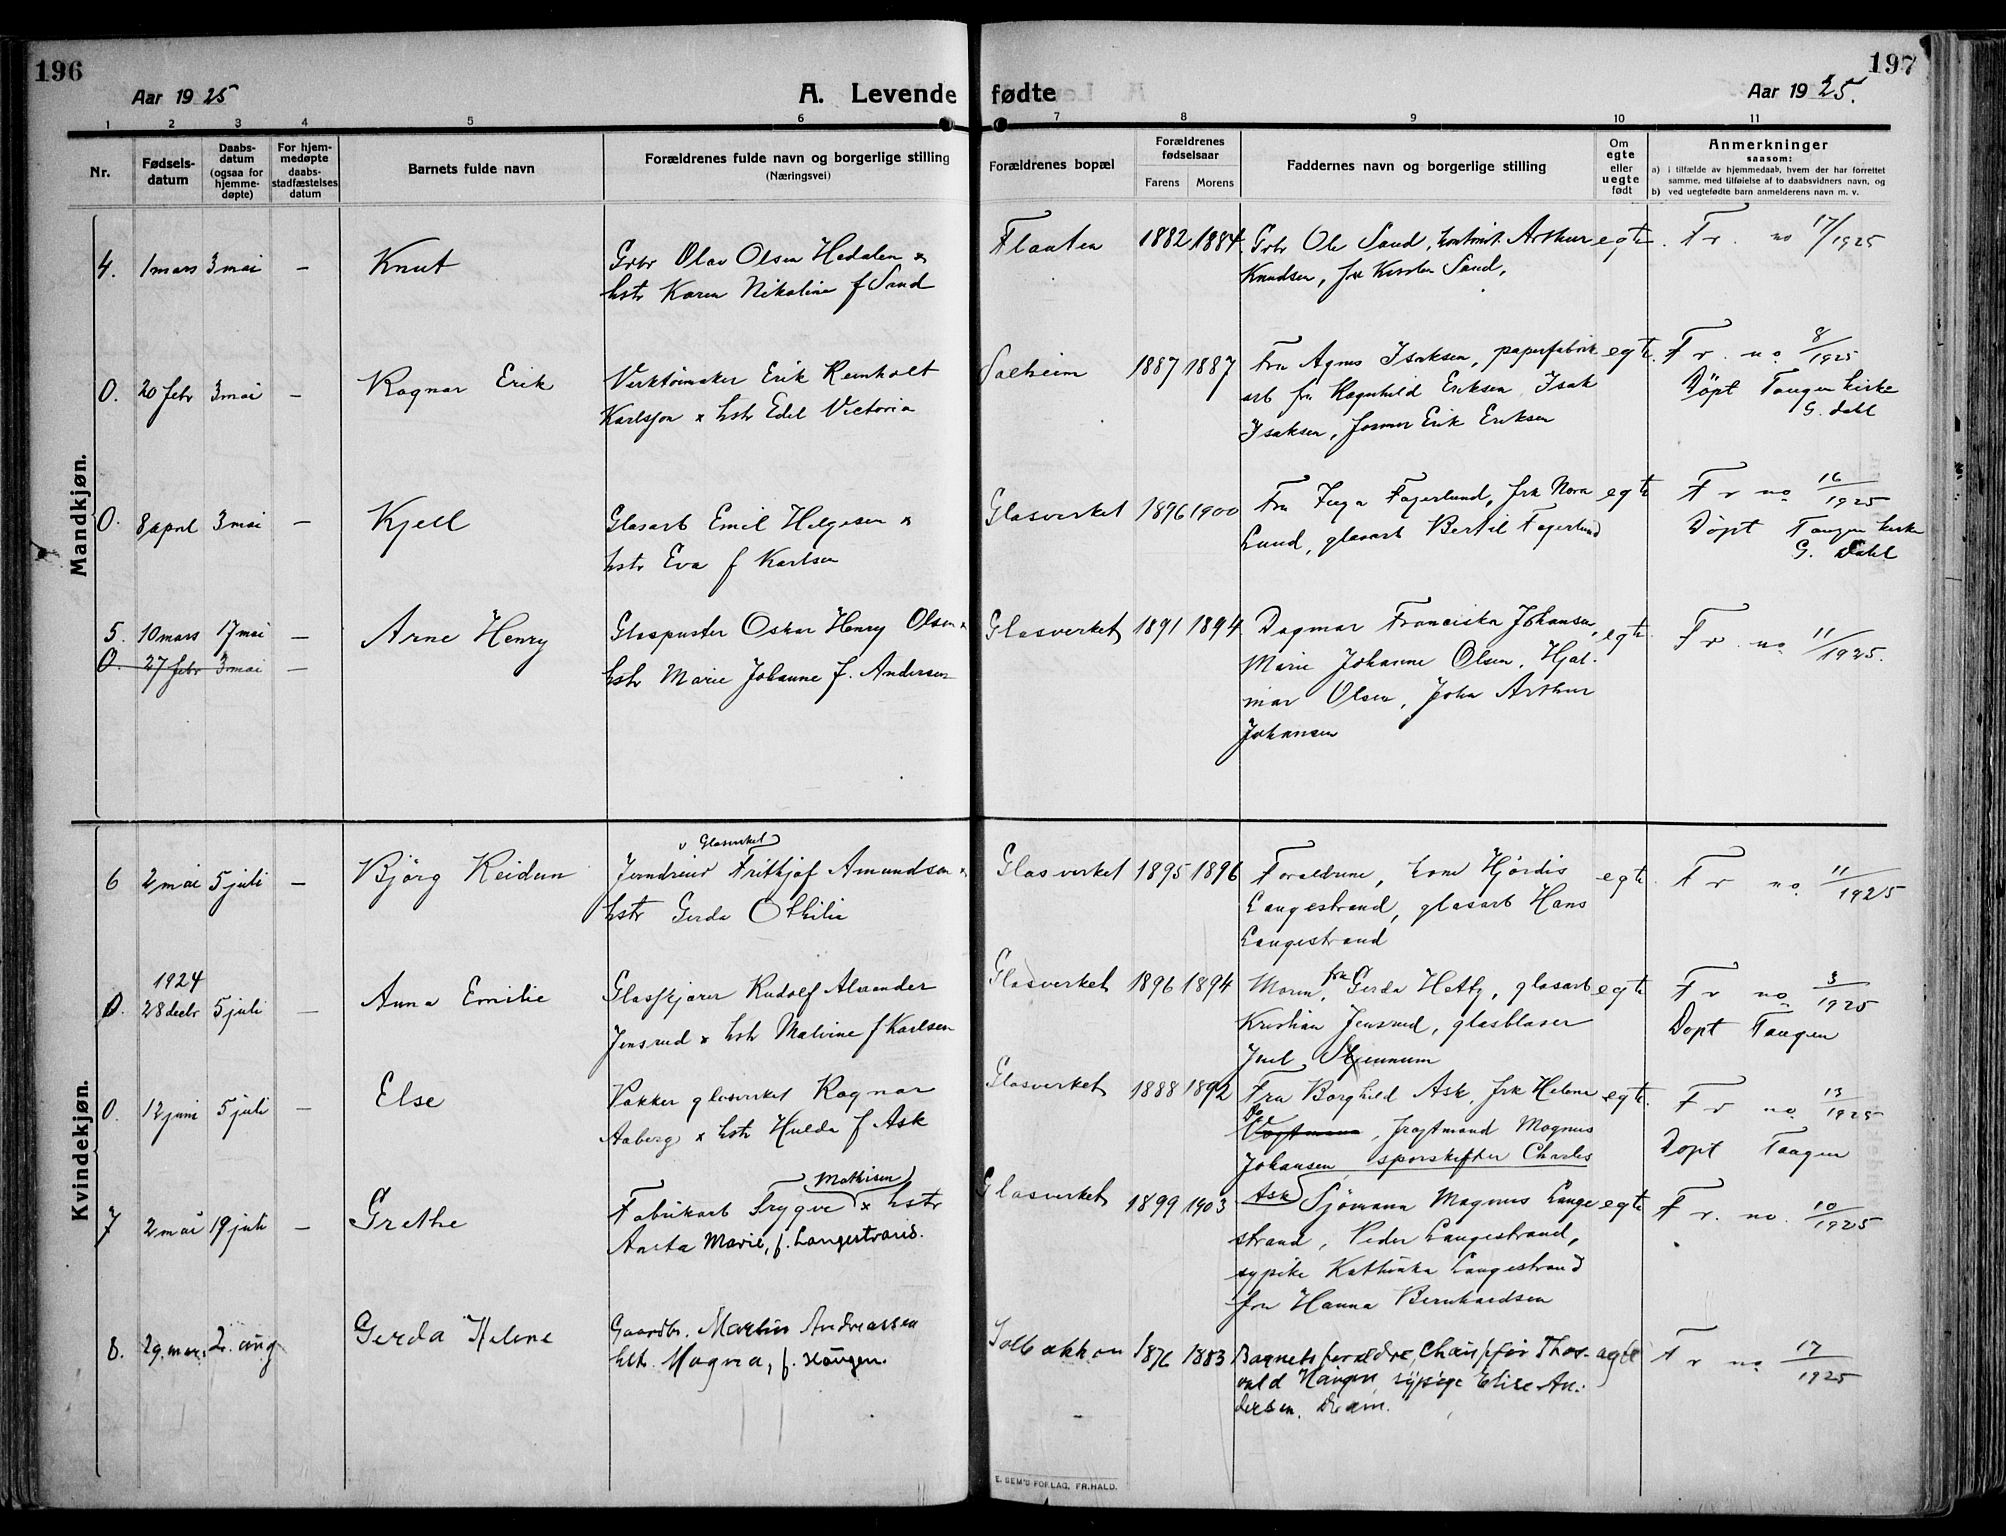 196
Aar 1925
A. Levende fødte
Aar 1925.
197
1 2 3 4 5 6 7 8 9 10 11
Nr.
Fødsels-
datum
Daabs-
datum
(ogsaa for
hjemme-
døpte)
For hjem-
medøpte
daabs-
stadfæstelses
datum
Barnets fulde navn
Forældrenes fulde navn og borgerlige stilling
(Næringsvei)
Forældrenes bopæl
Forældrenes
fødselsaar
Farens Morens
Faddernes navn og borgerlige stilling
Om
egte
eller
uegte
født
Anmerkninger
saasom:
a) i tilfælde av hjemmedaab, hvem der har forrettet
samme, med tilføielse af to daabsvidners navn, og
b) ved uegtefødte barn anmelderens navn m. v.
Mandkjøn.
4. 1 mars 3 mai – Knut
Gbr Olav Olsen Hedalen x
hstr Karen Nikoline f Sand
Flaaten 1882 1884
Gbr Ole Sand, Arthur
Knudsen, frk Kirsten Sand.
egte. F r. no 17/1925
0. 20 febr 3 mai – Ragnar Erik
Verktøimaker Erik Reinholt
Karlsson x hstr Edel Victoria
Solheim 1887 1887
Fru Agnes Isaksen, paperfabrik
arb fru Ragnhild Eriksen Isak
Isaksen, former Erik Eriksen
egte. F r. no 8/1925
Döpt Tangen kirke
G. Dahl
0. 8 april 3 mai – Kjell
Glasarb Emil Helgesen x
hstr Eva f Karlsen
Glasverket 1896 1900
Fru Inga Fagerlund, frk Nora
Lund, glasarb Bertil Fagerlund
egte F r no 16/1925
Döpt Tangen kirke
G. Dahl
5. 10 mars 17 mai – Arne Henry
0. 27 febr 3 mai –
Glaspuster Oskar Henry Olsen x
hstr Marie Johanne f. Andersen
Glasverket 1891 1894
Dagmar Franciska Johansen,
Marie Johanne Olsen, Hjal-
mar Olsen, John Arthur
Johansen
egte F r. no 11/1925.
Kvindekjøn.
6 2 mai 5 juli – Björg Reidun
v Glasverket
Jerndreier Frithjof Amundsen x
hstr Gerda Othilie
Glasverket 1895 1896
Foraldrene, Hjördis
Langestrand, glasarb Hans
Langestrand
egte. F r no. 11/1925
1924
0. 28 decbr 5 juli – Anna Emilie
Glasskjærer Rudolf Alexander
Jensrud x hstr Malvine f Karlsen
Glasverket 1896 1894
Moren, fru Gerda Hetty, glasarb
Kristian Jensrud, glasblaser
Juel Stjennum
egte F r no 3/1925
Dopt Tangen
0. 12 juni 5 juli – Else
Pakker glasverket Ragnar
Aaberg x hstr Hulda f Ask
Glasverket 1888 1892
Fru Borghild Ask, frk Helene
Do, Magnus
Johansen, sporskifter Charles
Ask
egte. F r no. 13/1925
Dopt Tangen
7 2 mai 19 juli – Grethe
Mathisen
Fabrikarb Trygve x hstr
Anita Marie, f. Langestrand.
Glasverket 1899 1903
Sjömann Magnus Lange
strand, Peder Langestrand,
sypike Kathinka Langestrand
fru Hanna Bernhardsen
egte F r. no. 10/1925
8. 29. mai. 2. aug Gerda Helene
Gaardbr. Martin Andreassen
hstr. Magna, f. Haugen.
Solbakken 1876 1883
Barnets foraldre, Chauffør Thor-
vald Haugen, sypige Elise An-
dersen. Dram.
egte F r no 17/1925
E. SEM'S FORLAG, FR.HALD.